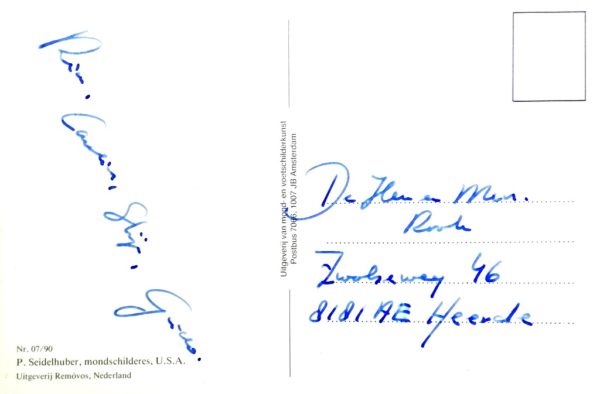 Ria.
Carla.
Nr. 07/90
P. Seidelhuber, mondschilderes, U.S.A.
Uitgeverij Removos, Nederland
Uitgeverij van mond- en voetschilderkunst
Postbus 7086, 1007 JB Amsterdam
De Heer en Mevr.
Roode
Zwolseweg 46
8181 AE Heerde